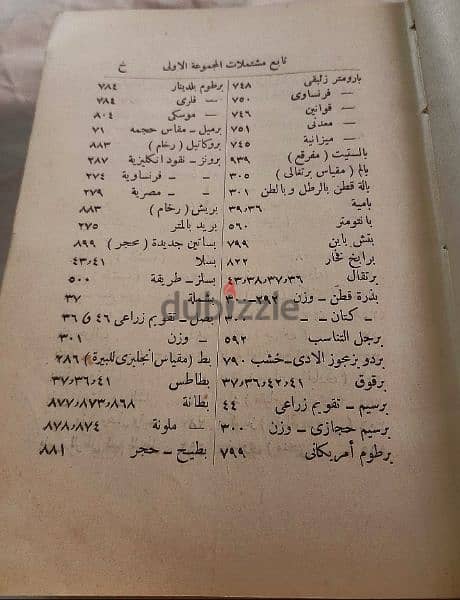 تابع مشتملات المجموعة الاولى خ
بارومتر زئبقى ٧٤٨
— فرنساوى ٧٥٠
— قوانين ٧٤٦
— معدنى ٧٥١
— ميزانية ٧٤٥
بالستيت ( مفرقع ) ٩٣٩
بالم ( مقياس برتقالى ) ٣٠٥
بالة قطن بالرطل وبالطن ٣٠١
بامية ٣٩،٣٦
بانتومتر ٥٦٠
بتش باين ٧٩٩
برابخ فخار ٨٢٢
برتقال ٤٣،٣٨،٣٧،٣٦
بذرة قطن — وزن ٢٩٢—٣٠٠
— كتان — »
برجل التناسب ٥٩٢
بردو بزعجوز الادى—خشب ٧٩٠
برقوق ٣٧،٣٦،٤٢،٤١
برسيم — تقويم زراعى ٤٤
برسيم حجازى — وزن ٣٠٠
برطوم أمريكانى ٧٩٩
برطوم بلدينار ٧٨٤
— فلرى ٧٨٤
— موسكى ٨٠٤
برميل — مقاس حجمه ٧١
بروكاتيل ( رخام ) ٨٨٣
برونز — نقود انكليزية ٢٨٧
— — فرنساوية ٢٧٤
— — مصرية ٢٧٩
بريش ( رخام ) ٨٨٣
بريد بالمتر ٢٧٥
بساتين جديدة ( حجر ) ٨٩٩
بسلا ٤٣،٤١
بسلز — طريقة ٥٠٠
٣٧
بصل — تقويم زراعى ٤٦ ق ٣٦
— وزن ٣٠١
بط ( مقياس انجليزى للبيرة ) ٢٨٦
بطاطس ٣٧،٣٦،٤١
بطانة ٨٧٧،٨٧٣،٨٦٨
— ملونة ٨٧٨،٨٧٤
بطيخ — حجر ٨٨١
dubizzle